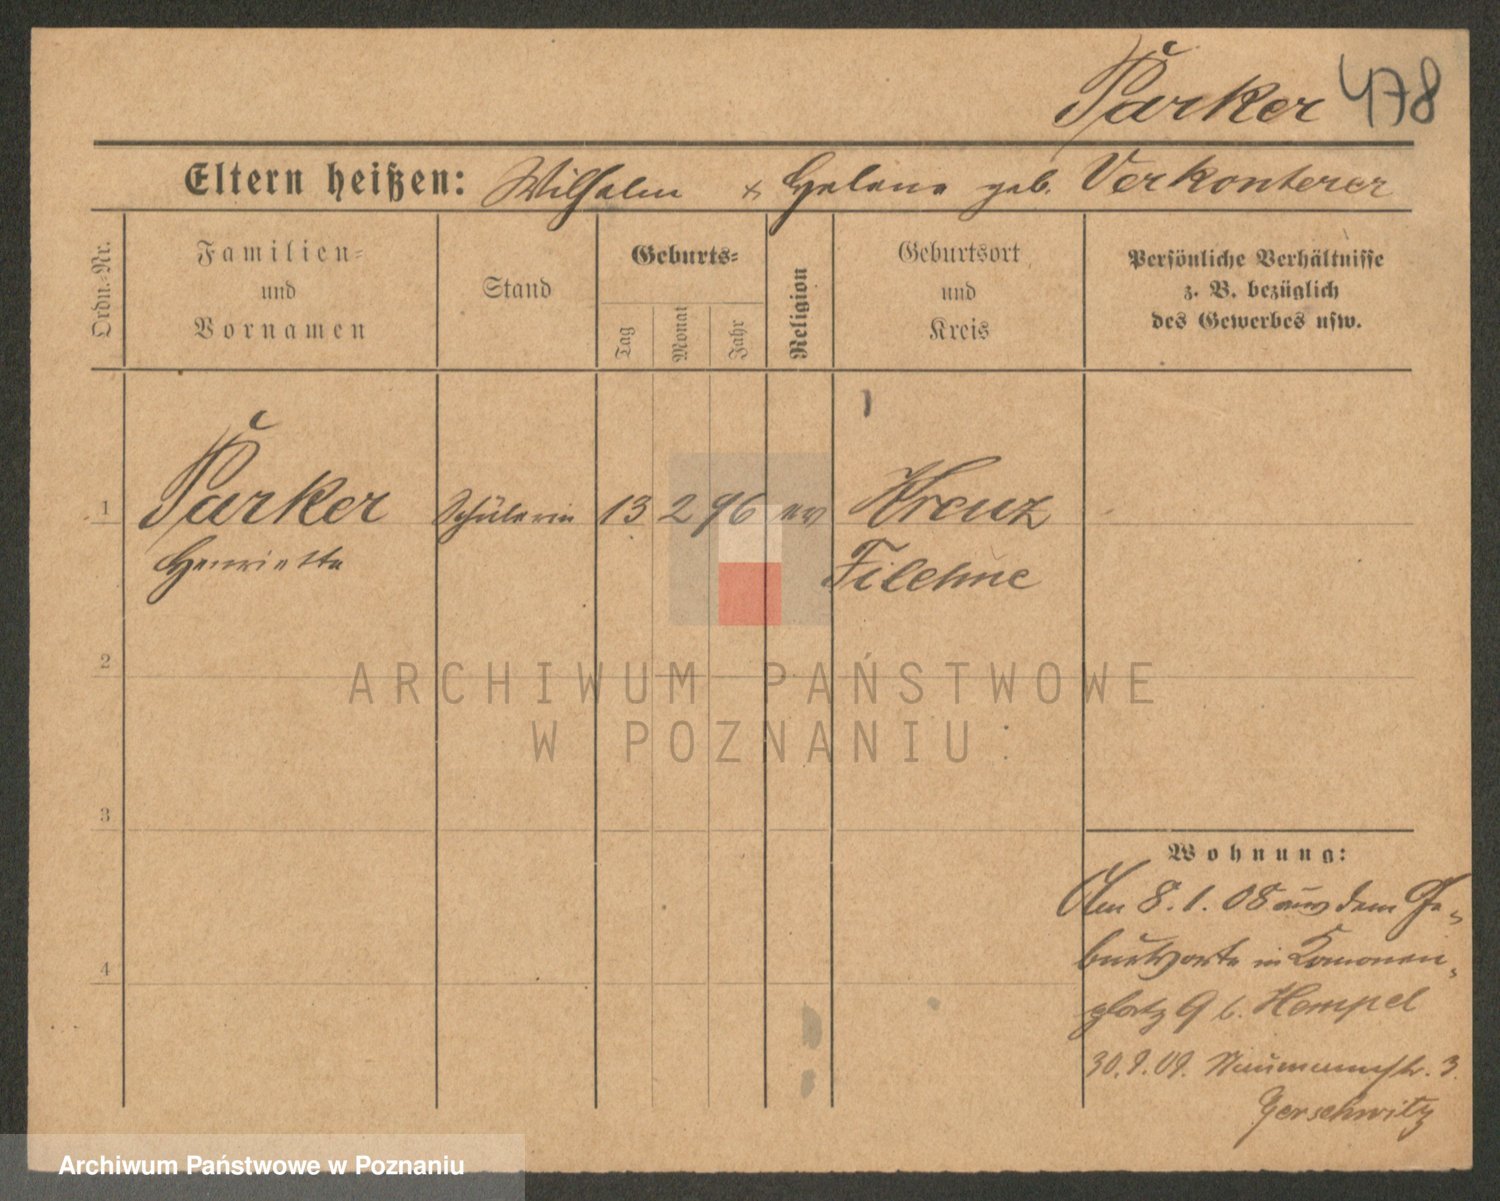 Parker 478
Eltern heißen: Wilhelm & Helene geb. Verkonterer
Ordn.-Nr.
Familien-
und
Vornamen
Stand
Geburts-
Tag
Monat
Jahr
Religion
Geburtsort
und
Kreis
Persönliche Verhältnisse
z. B. bezüglich
des Gewerbes usw.
1 Parker Schülerin 13 2 96 ev Kreuz
Henriette Filehne
2
ARCHIWUM PAŃSTWOWE
W POZNANIU
3
Wohnung:
Am 8.1.08 aus dem Ge-
burtsorte in Kanonen-
platz 9 b. Hempel
30.9.09. Naumannstr. 3.
Gerschwitz
4
Archiwum Państwowe w Poznaniu